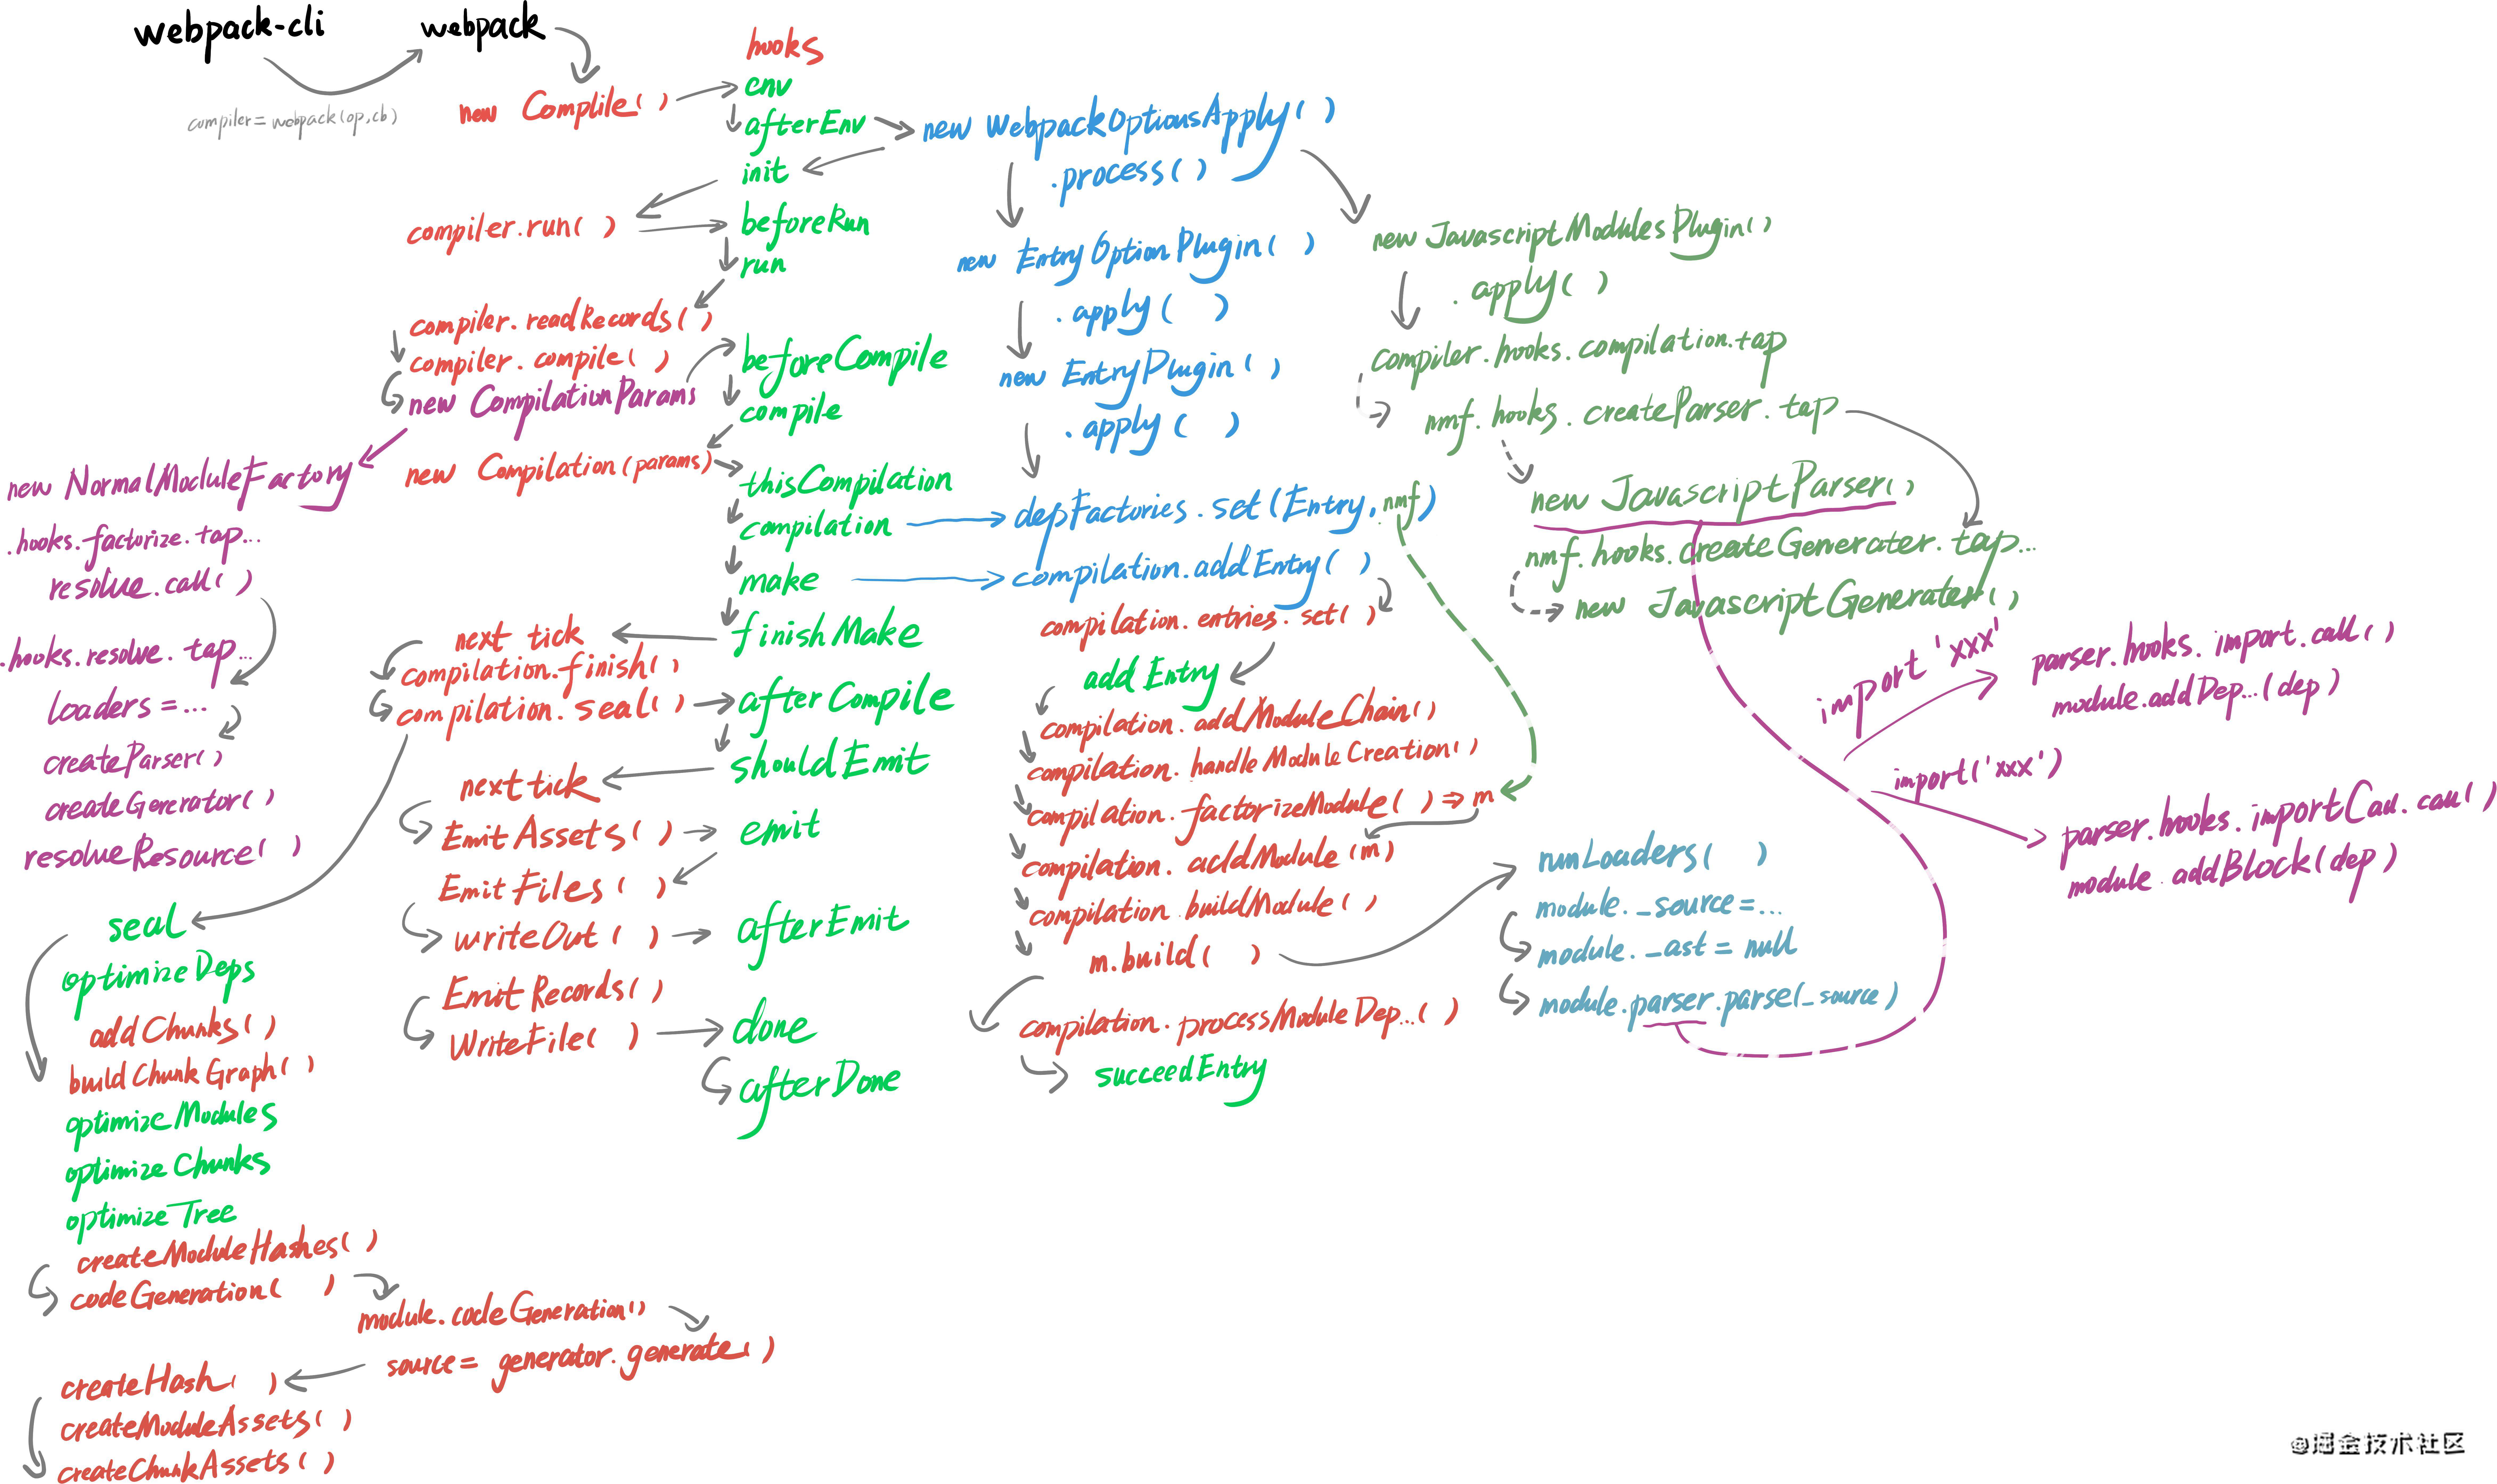 webpack-cli
compiler=webpack(op,cb)
webpack
new Complile( )
compiler.run( )
compiler.readRecords( )
compiler.compile( )
new CompilationParams
new Compilation(params)
new NormalModuleFactory
.hooks.factorize.tap...
resolve.call( )
.hooks.resolve.tap...
loaders=...
createParser( )
createGenerator( )
resolveResource( )
next tick
compilation.finish( )
compilation.seal( )
next tick
EmitAssets( )
EmitFiles( )
writeOut( )
EmitRecords( )
WriteFile( )
seal
optimizeDeps
addChunks( )
buildChunkGraph( )
optimizeModules
optimizeChunks
optimizeTree
createModuleHashes( )
codeGeneration( )
module.codeGeneration()
source= generator.generate( )
createHash( )
createModuleAssets( )
createChunkAssets( )
hooks
env
afterEnv
init
beforeRun
run
beforeCompile
compile
thisCompilation
compilation
make
finishMake
afterCompile
shouldEmit
emit
afterEmit
done
afterDone
new WebpackOptionsApply( )
.process( )
new EntryOptionPlugin( )
.apply( )
new EntryPlugin( )
.apply( )
depFactories.set(Entry,nmf)
compilation.addEntry( )
compilation.entries.set( )
addEntry
compilation.addModuleChain( )
compilation.handleModuleCreation( )
compilation.factorizeModule( ) => m
compilation.addModule(m)
compilation.buildModule( )
m.build( )
compilation.processModuleDep...( )
succeedEntry
new JavascriptModulesPlugin( )
.apply( )
compiler.hooks.compilation.tap
nmf.hooks.createParser.tap
new JavascriptParser( )
nmf.hooks.createGenerater.tap...
new JavascriptGenerater( )
runLoaders( )
module._source=...
module._ast = null
module.parser.parse(_source)
import 'xxx'
parser.hooks.import.call( )
module.addDep...(dep)
import('xxx')
parser.hooks.importCall.call( )
module.addBlock(dep)
@掘金技术社区